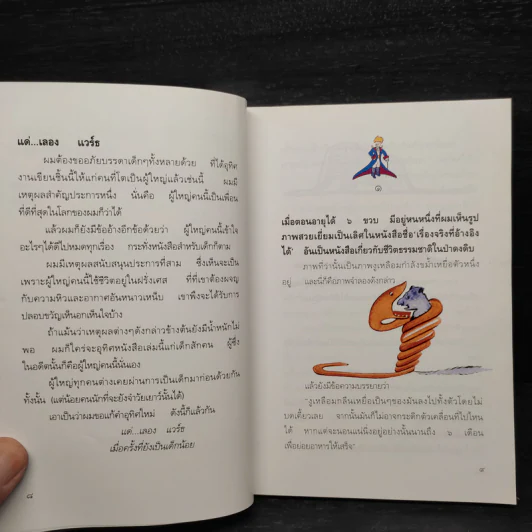 แด่...เลออง แวร์ธ
ผมต้องขออภัยบรรดาเด็กๆทั้งหลายด้วย ที่ได้อุทิศ
งานเขียนชิ้นนี้ให้แก่คนที่โตเป็นผู้ใหญ่แล้วเช่นนี้ ผมมี
เหตุผลสำคัญประการหนึ่ง นั่นคือ ผู้ใหญ่คนนี้เป็นเพื่อน
ที่ดีที่สุดในโลกของผมก็ว่าได้
แล้วผมก็ยังมีข้ออ้างอีกข้อด้วยว่า ผู้ใหญ่คนนี้เข้าใจ
อะไรๆได้ดีไปหมดทุกเรื่อง กระทั่งหนังสือสำหรับเด็กก็ตาม
ผมมีเหตุผลสนับสนุนประการที่สาม ซึ่งเห็นจะเป็น
เพราะผู้ใหญ่คนนี้ใช้ชีวิตอยู่ในฝรั่งเศส ที่ที่เขาต้องผจญ
กับความหิวและอากาศอันหนาวเหน็บ เขาพึงจะได้รับการ
ปลอบขวัญเห็นอกเห็นใจบ้าง
ถ้าแม้นว่าเหตุผลต่างๆดังกล่าวข้างต้นยังมีน้ำหนักไม่
พอ ผมก็ใคร่จะอุทิศหนังสือเล่มนี้แก่เด็กสักคน ผู้ซึ่ง
ในอดีตนั้นก็คือผู้ใหญ่คนนี้นั่นเอง
ผู้ใหญ่ทุกคนต่างเคยผ่านการเป็นเด็กมาก่อนด้วยกัน
ทั้งนั้น (แต่น้อยคนนักที่จะยังจำวัยเยาว์นั้นได้)
เอาเป็นว่าผมขอแก้คำอุทิศใหม่ ดังนี้ก็แล้วกัน
แด่...เลออง แวร์ธ
เมื่อครั้งที่ยังเป็นเด็กน้อย
๘
๑
เมื่อตอนอายุได้ ๖ ขวบ มีอยู่หนหนึ่งที่ผมเห็นรูป
ภาพสวยเยี่ยมเป็นเลิศในหนังสือชื่อ'เรื่องจริงที่อ้างอิง
ได้' อันเป็นหนังสือเกี่ยวกับชีวิตธรรมชาติในป่าดงดิบ
ภาพที่ว่านั้นเป็นภาพงูเหลือมกำลังขม้ำเหยื่อตัวหนึ่ง
อยู่ และนี่ก็คือภาพจำลองดังกล่าว
แล้วยังมีข้อความบรรยายว่า
"งูเหลือมกลืนเหยื่อเป็นๆของมันลงไปทั้งตัวโดยไม่
บดเคี้ยวเลย จากนั้นมันก็ไม่อาจกระดิกตัวเคลื่อนที่ไปไหน
ได้ หากแต่จะนอนแน่นิ่งอยู่อย่างนั้นนานถึง ๖ เดือน
เพื่อย่อยอาหารให้เสร็จ"
๙